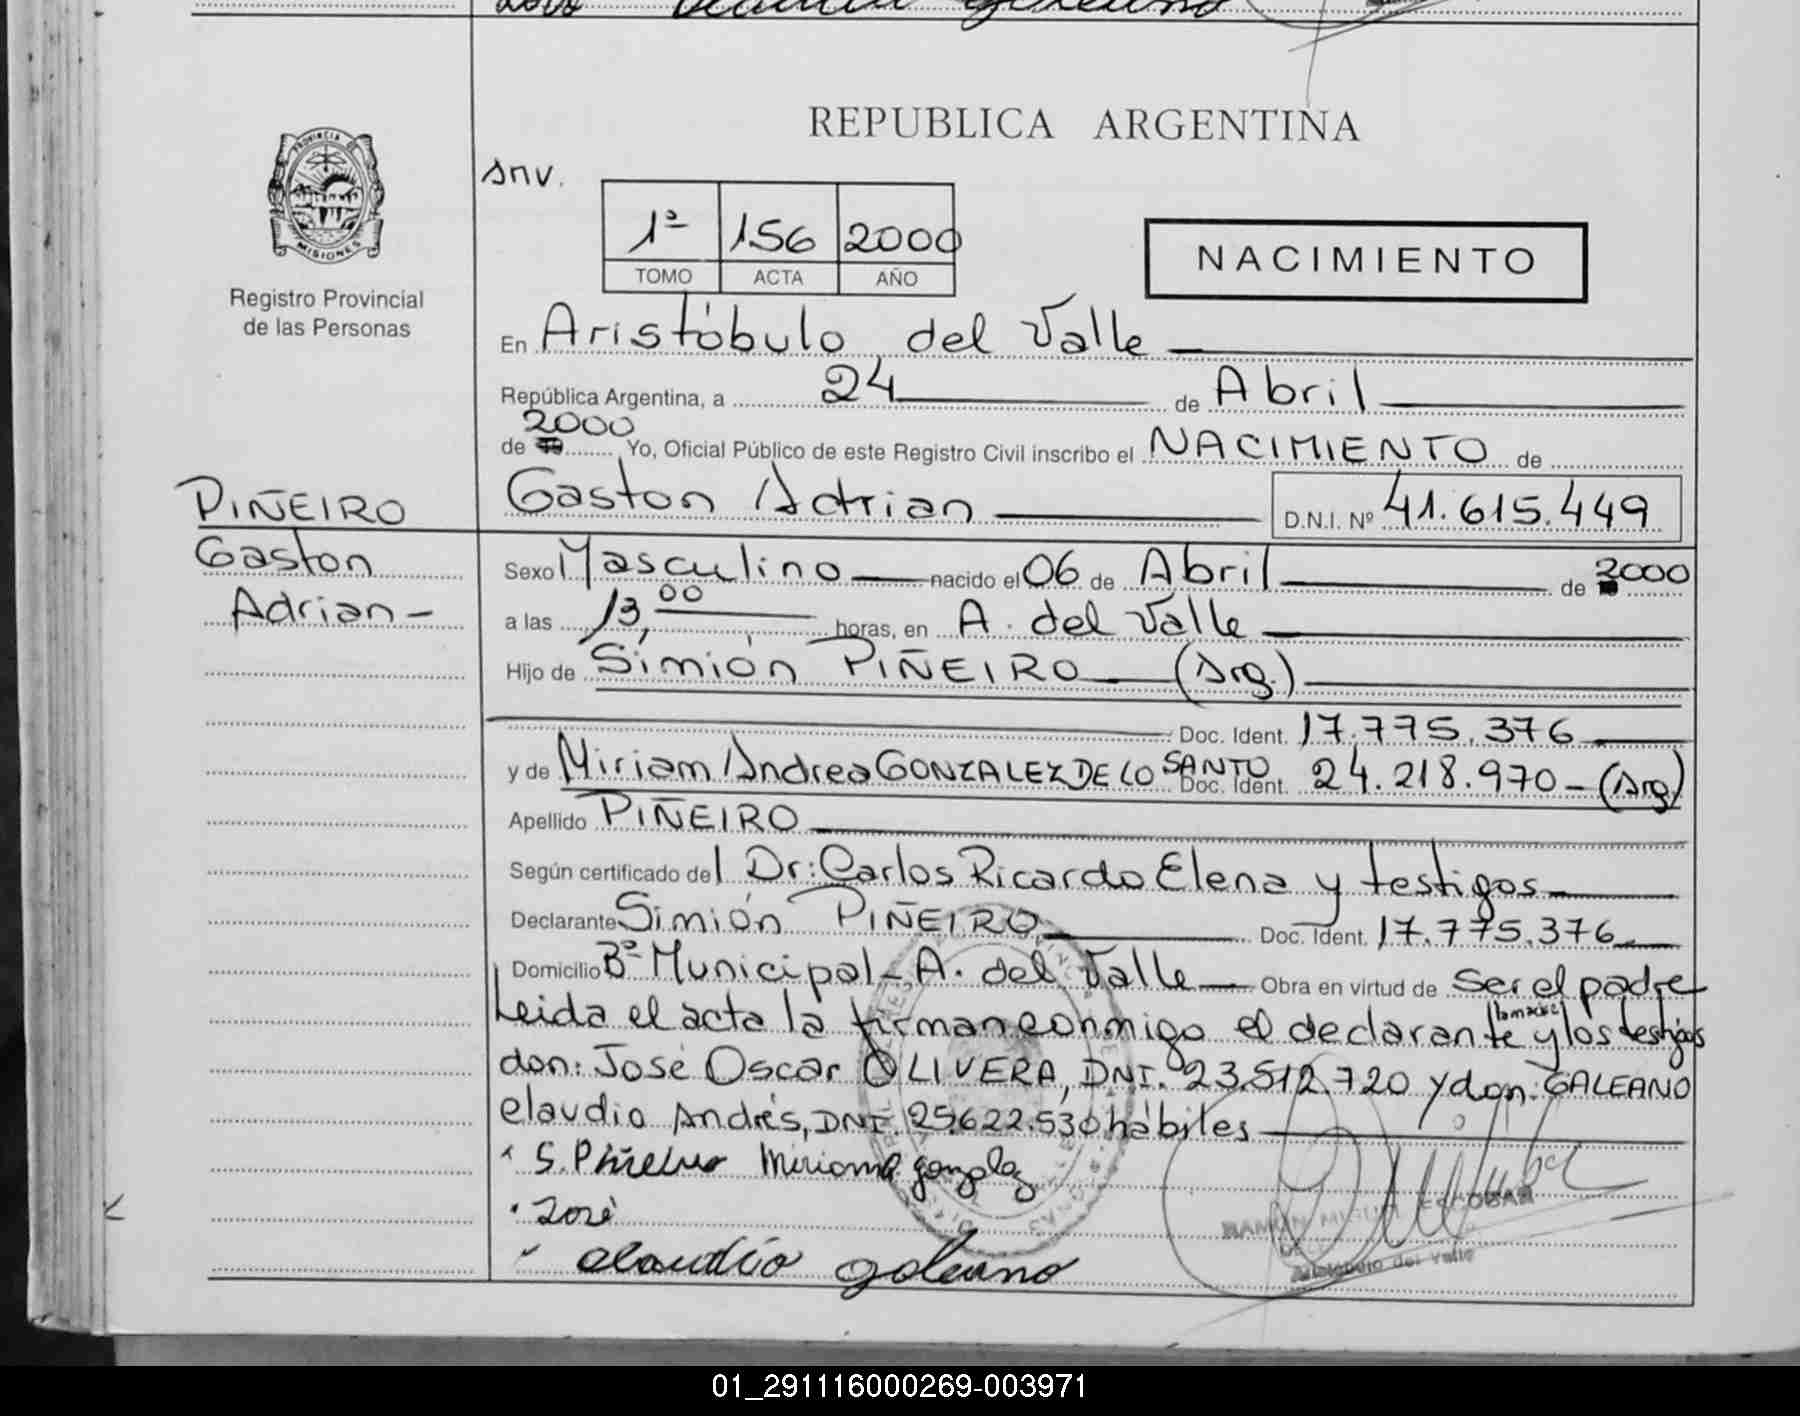 REPUBLICA ARGENTINA
PROVINCIA DE
MISIONES
Registro Provincial
de las Personas
snv.
1ª 156 2000
TOMO ACTA AÑO
NACIMIENTO
En Aristóbulo del Valle
República Argentina, a 24 de Abril
de 2000 Yo, Oficial Público de este Registro Civil inscribo el NACIMIENTO de
PIÑEIRO
Gaston Adrian D.N.I. Nº 41.615.449
Gaston
Adrian-
Sexo Masculino nacido el 06 de Abril de 2000
a las 13,00 horas, en A. del Valle
Hijo de Simión PIÑEIRO (Arg.)
Doc. Ident. 17.775.376
y de Miriam Andrea GONZALEZ DE LO SANTO Doc. Ident. 24.218.970-(Arg)
Apellido PIÑEIRO
Según certificado del Dr: Carlos Ricardo Elena y testigos
Declarante Simión PIÑEIRO Doc. Ident. 17.775.376
Domicilio Bº Municipal-A. del Valle Obra en virtud de ser el padre
Leida el acta la firman conmigo el declarante la madre y los testigos
don: José Oscar OLIVERA, DNI. 23.512.720 y don: GALEANO
claudio Andrés, DNI. 25.622.530 hábiles
S. Piñeiro Miriam A. gonzalez
José
claudio galeano
RAMON MIGUEL ESCOBAR
Aristóbulo del Valle
01_291116000269-003971